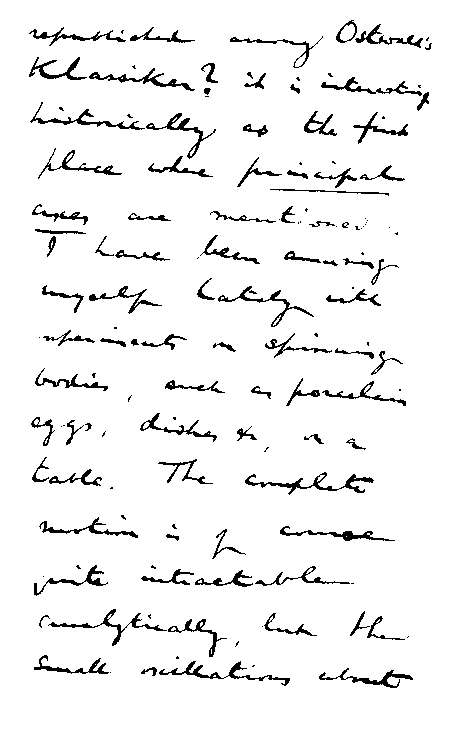 republished among Ostwald's
Klassiker? it is interesting
historically as the first
place where principal
axes are mentioned.
I have been amusing
myself lately with
experiments on spinning
bodies, such as porcelain
eggs, dishes &c, on a
table. The complete
motion is of course
quite intractable
analytically, but the
small oscillations about